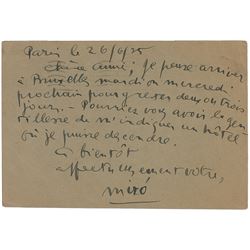 Paris le 26/6/35
Cher ami; je pense arriver
à Bruxelles mardi ou mercredi
prochain pour y rester deux ou trois
jours. - Pourriez vous avoir la gen
tillesse de m'indiquer un hôtel
où je puisse descendre.
à bientôt
affectueusement vôtre,
Miró